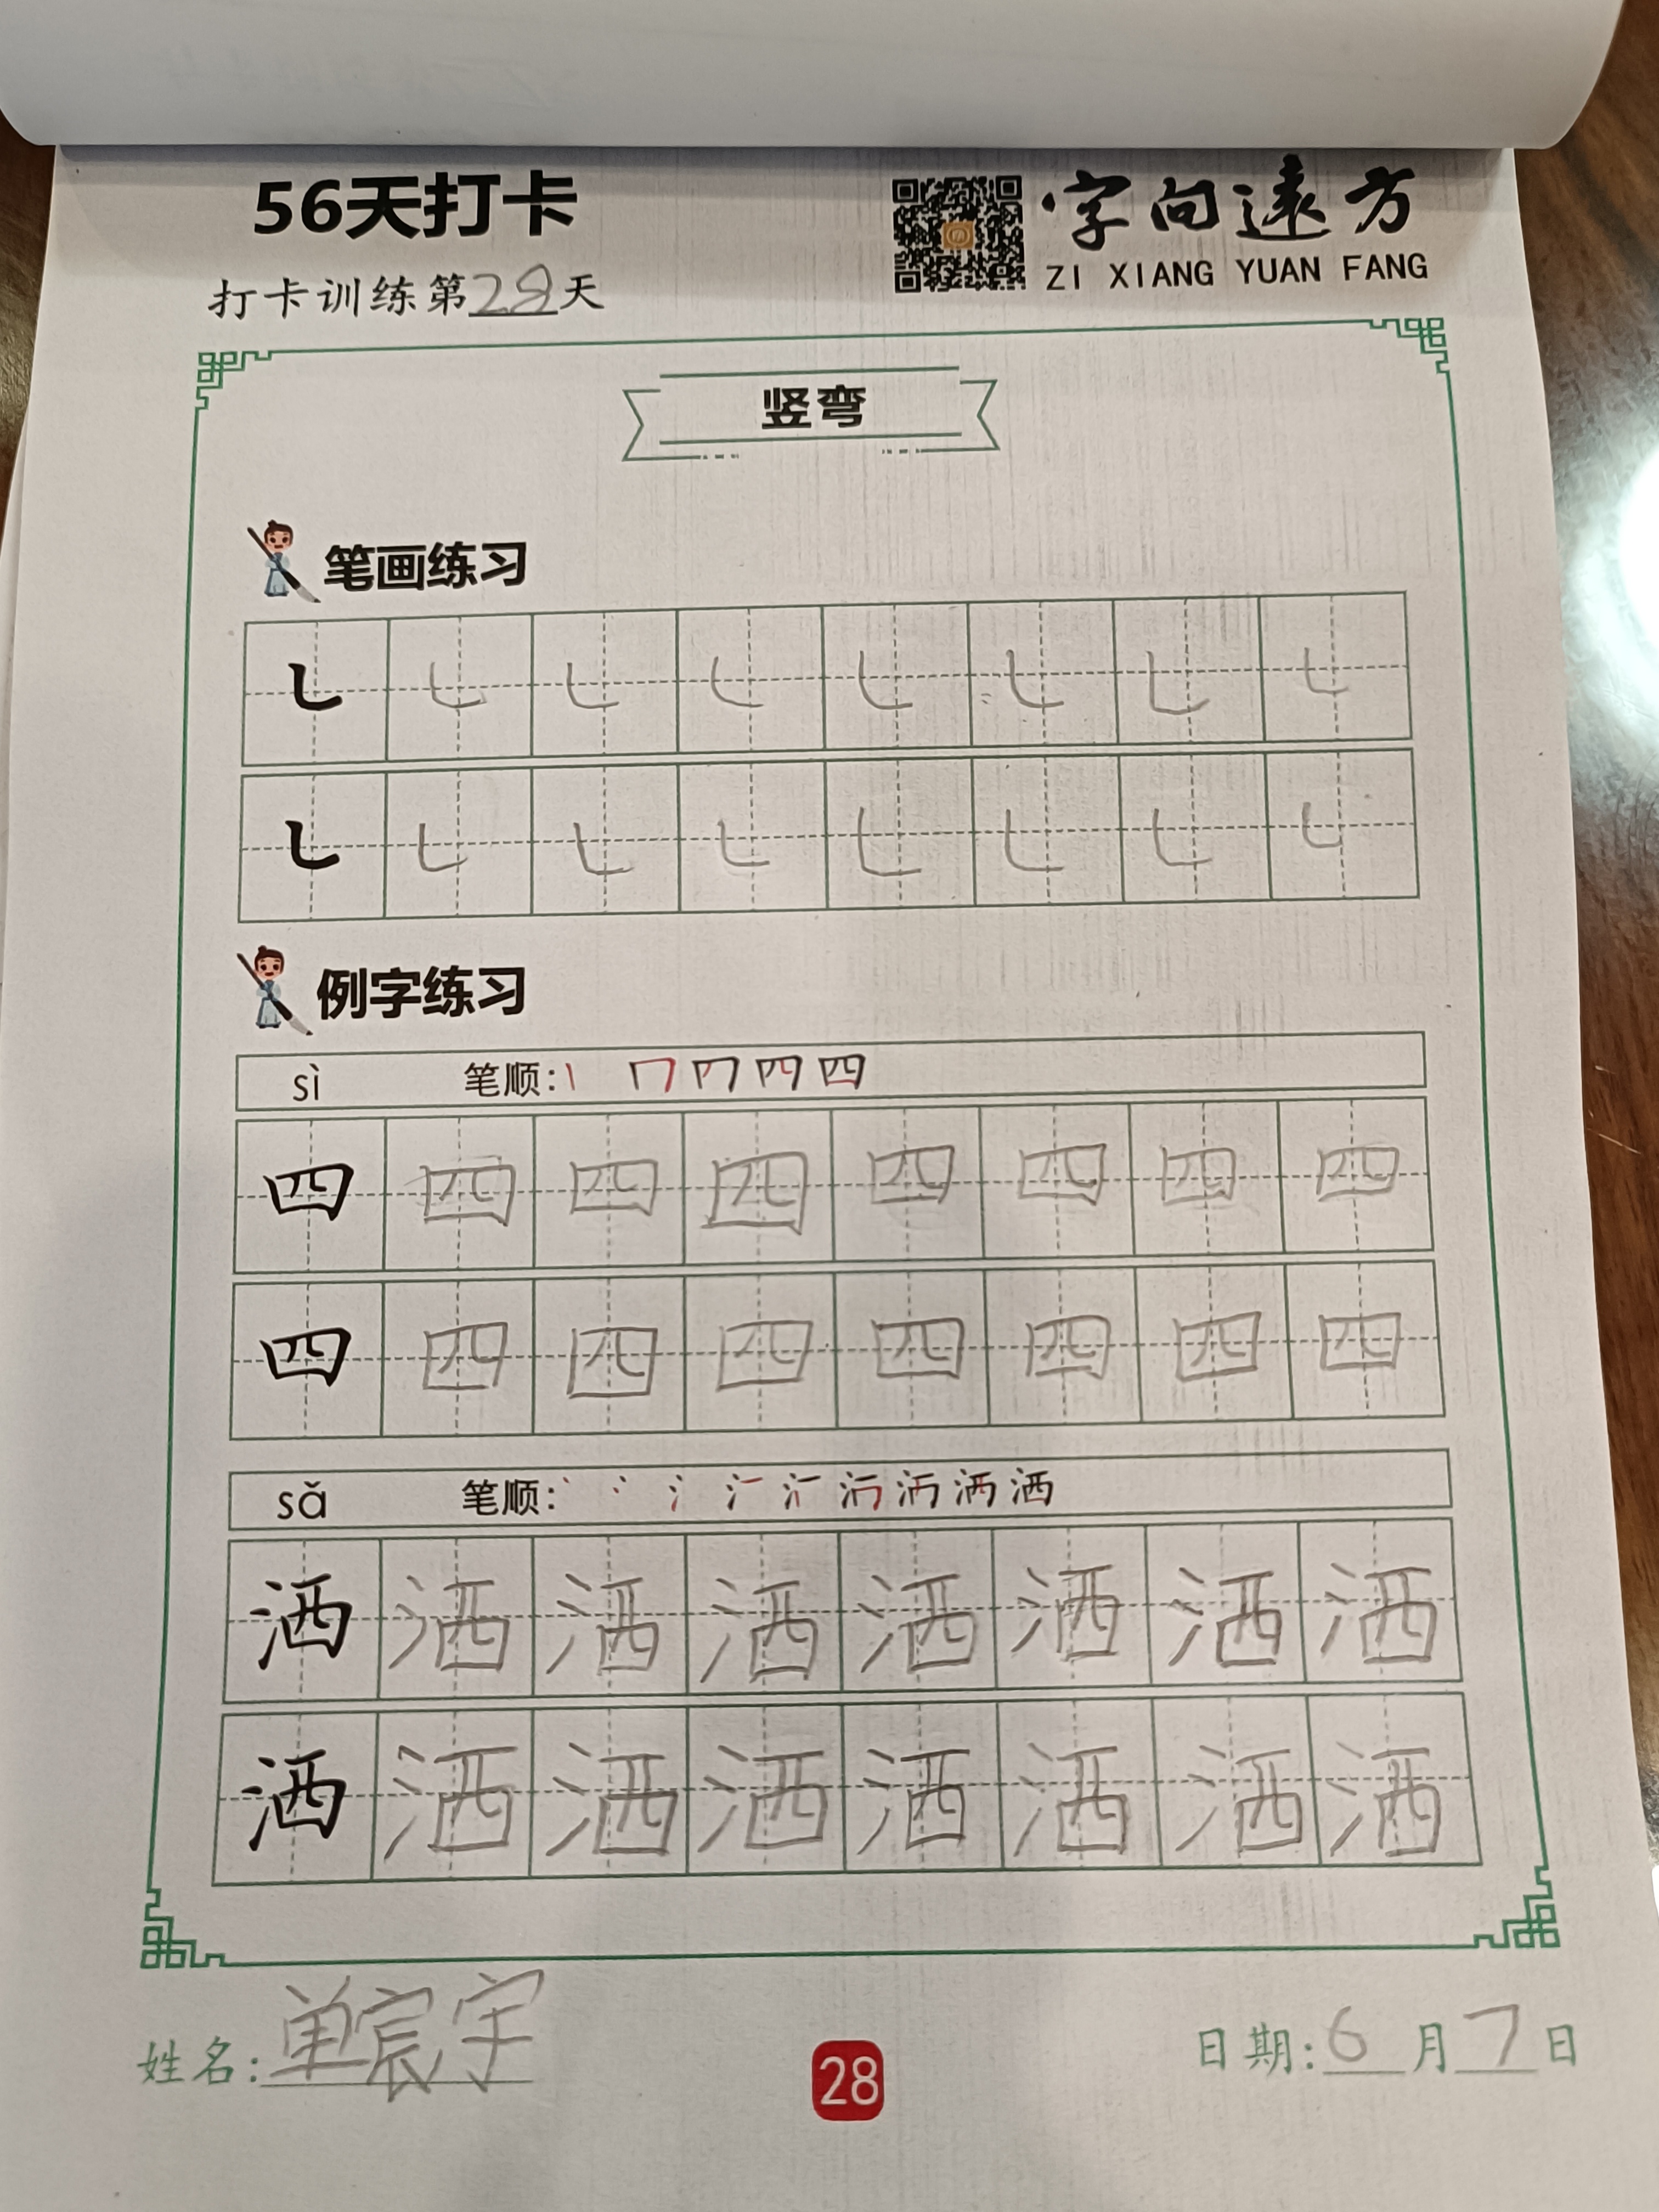 56天打卡
字向遠方
ZI XIANG YUAN FANG
打卡训练第28天
竖弯
笔画练习
㇄ ㇄ ㇄ ㇄ ㇄ ㇄ ㇄ ㇄
㇄ ㇄ ㇄ ㇄ ㇄ ㇄ ㇄ ㇄
例字练习
sì 笔顺: 四
四 四 四 四 四 四 四 四
四 四 四 四 四 四 四 四
sǎ 笔顺: 洒
洒 洒 洒 洒 洒 洒 洒 洒
洒 洒 洒 洒 洒 洒 洒 洒
姓名: 单宸宇
28
日期: 6月7日